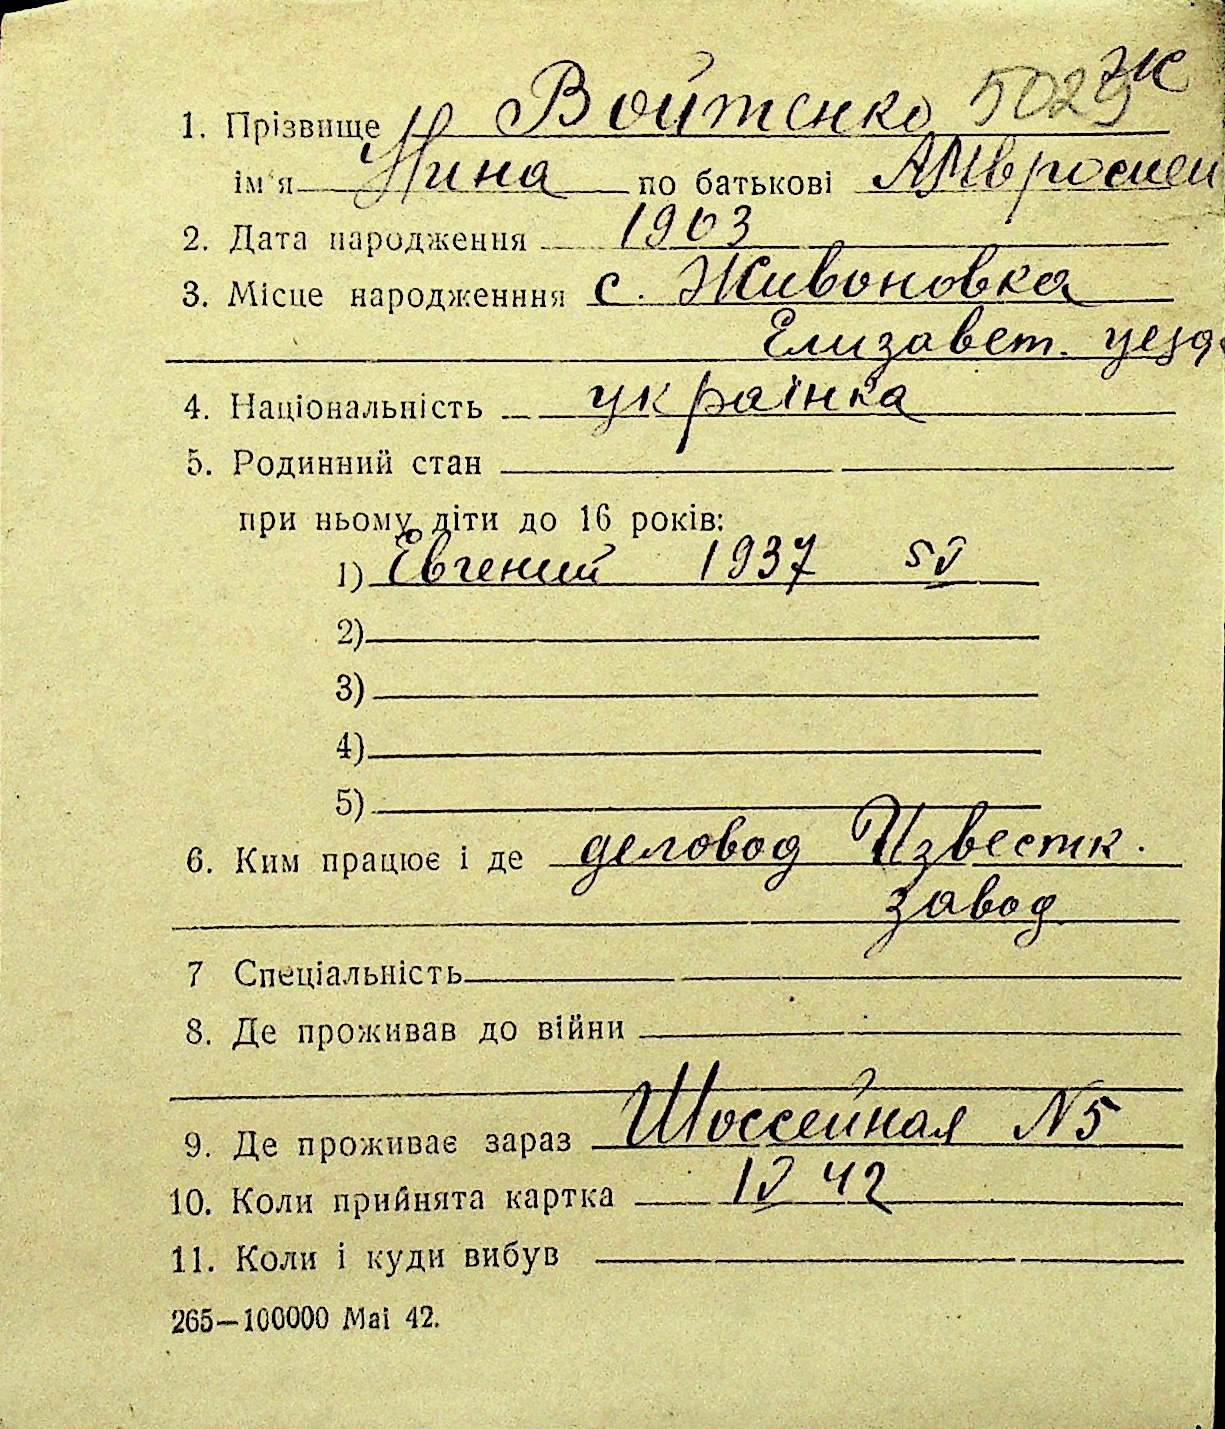 5029 ж
1. Прізвище Войтенко
ім'я Нина по батькові Амвросиев
2. Дата народження 1903
3. Місце народженння с. Живоновка
Елизавет. уезд
4. Національність українка
5. Родинний стан
при ньому діти до 16 років:
1) Евгений 1937 5 V
2)
3)
4)
5)
6. Ким працює і де деловод Известк.
завод
7 Спеціальність
8. Де проживав до війни
9. Де проживає зараз Шоссейная N5
10. Коли прийнята картка 1 V 42
11. Коли і куди вибув
265—100000 Маі 42.